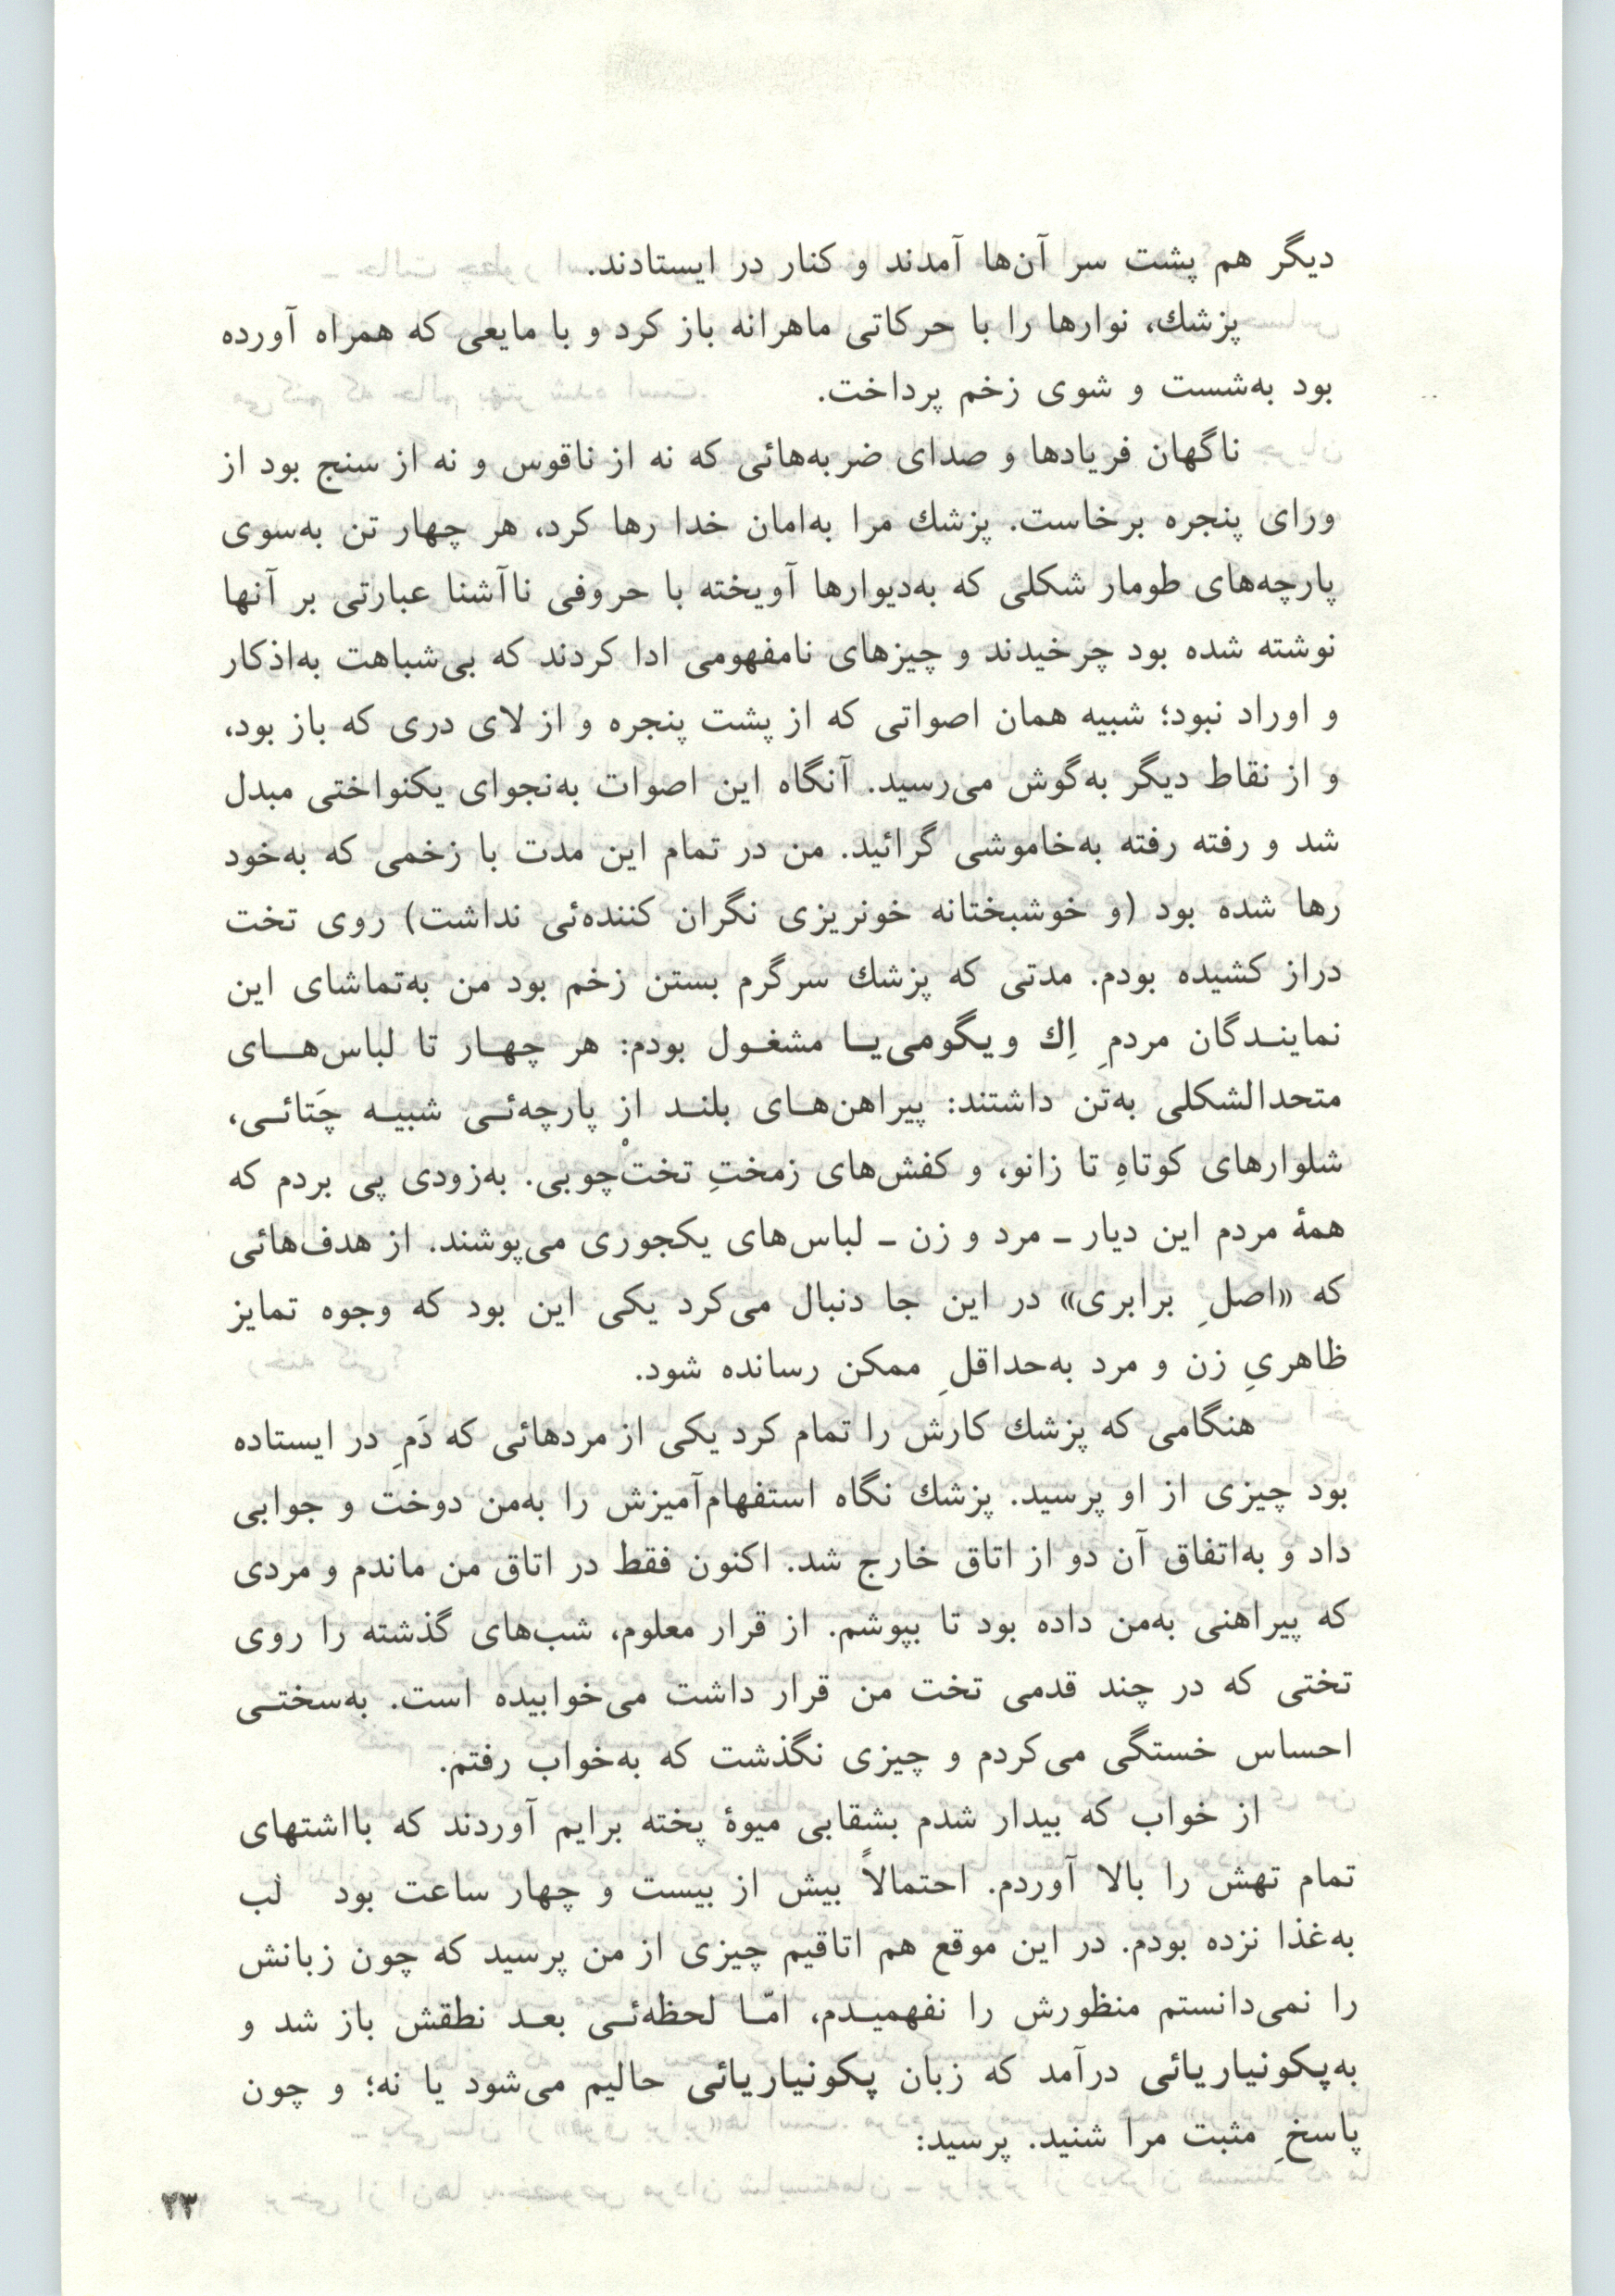 دیگر هم پشت سر آن‌ها آمدند و کنار در ایستادند.
پزشك، نوارها را با حرکاتی ماهرانه باز کرد و با مایعی که همراه آورده
بود به‌شست و شوی زخم پرداخت.
ناگهان فریادها و صدای ضربه‌هائی که نه از ناقوس و نه از سنج بود از
ورای پنجره برخاست. پزشك مرا به‌امان خدا رها کرد، هر چهار تن به‌سوی
پارچه‌های طومار شکلی که به‌دیوارها آویخته با حروفی ناآشنا عبارتی بر آنها
نوشته شده بود چرخیدند و چیزهای نامفهومی ادا کردند که بی‌شباهت به‌اذکار
و اوراد نبود؛ شبیه همان اصواتی که از پشت پنجره و از لای دری که باز بود،
و از نقاط دیگر به‌گوش می‌رسید. آنگاه این اصوات به‌نجوای یکنواختی مبدل
شد و رفته رفته به‌خاموشی گرائید. من در تمام این مدت با زخمی که به‌خود
رها شده بود (و خوشبختانه خونریزی نگران کننده‌ئی نداشت) روی تخت
دراز کشیده بودم. مدتی که پزشك سرگرم بستن زخم بود من به‌تماشای این
نماینـدگان مردمِ اِك ویگومی‌یـا مشغـول بودم: هر چهـار تا لباس‌هـای
متحدالشکلی به‌تن داشتند: پیراهن‌هـای بلنـد از پارچه‌ئـی شبیـه چَتائـی،
شلوارهای کوتاهِ تا زانو، و کفش‌های زمختِ تختْ‌چوبی. به‌زودی پی بردم که
همۀ مردم این دیار ـ مرد و زن ـ لباس‌های یکجوری می‌پوشند. از هدف‌هائی
که «اصلِ برابری» در این جا دنبال می‌کرد یکی این بود که وجوه تمایز
ظاهریِ زن و مرد به‌حداقلِ ممکن رسانده شود.
هنگامی که پزشك کارش را تمام کرد یکی از مردهائی که دَمِ در ایستاده
بود چیزی از او پرسید. پزشك نگاه استفهام‌آمیزش را به‌من دوخت و جوابی
داد و به‌اتفاق آن دو از اتاق خارج شد. اکنون فقط در اتاق من ماندم و مردی
که پیراهنی به‌من داده بود تا بپوشم. از قرار معلوم، شب‌های گذشته را روی
تختی که در چند قدمی تخت من قرار داشت می‌خوابیده است. به‌سختـی
احساس خستگی می‌کردم و چیزی نگذشت که به‌خواب رفتم.
از خواب که بیدار شدم بشقابی میوۀ پخته برایم آوردند که بااشتهای
تمام تهش را بالا آوردم. احتمالاً بیش از بیست و چهار ساعت بود لب
به‌غذا نزده بودم. در این موقع هم اتاقیم چیزی از من پرسید که چون زبانش
را نمی‌دانستم منظورش را نفهمیـدم، امّـا لحظه‌ئـی بعـد نطقش باز شد و
به‌پکونیاریائی درآمد که زبان پکونیاریائی حالیم می‌شود یا نه؛ و چون
پاسخِ مثبت مرا شنید. پرسید:
۲۳